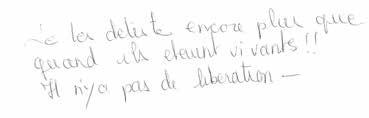 Je les déteste encore plus que
quand ils étaient vivants!!
Il n'y a pas de libération —